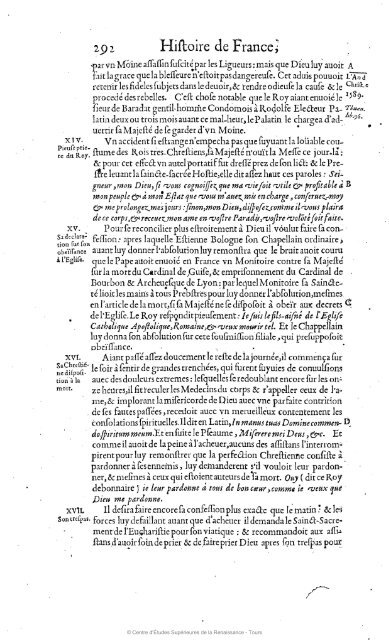 292 Histoire de France,
par vn Moine assassin suscité par les Ligueurs: mais que Dieu luy auoit A
fait la grace que la blesseure n'estoit pas dangereuse. Cet aduis pouuoit L'An d
retenir les fideles subjets dans le deuoir, & tendre odieuse la cause & le Christ
procedé des rebelles. C'est chose notable que le Roy aiant enuoié le 1589.
sieur de Baradat gentil-homme Condomois à Rodolfe Electeur Pa-
latin deux ou trois mois auant ce mal-heur, le Palatin le chargea d'ad-
uertir sa Majesté de se garder d'vn Moine.
XIV. Vn accident si estrange n'empecha pas que suyuant la loüable cou-
Pieuse priere du Roy. stume des Rois tres-Chrestiens, sa Majesté n'ouït la Messe ce jour-là:
& pour cet effect vn autel portatif fut dressé prez de son lict: & le Pre-
stre leuant la saincte-sacrée Hostie, elle dit assez haut ces paroles: Sei-
gneur, mon Dieu, si vous cognoissez que ma vie soit vtile & profitable à B
mon peuple & à mon Estat que vous m'auez mis en charge, conseruez-moy
& me prolongez mes jours: sinon, mon Dieu, disposez, comme il vous plaira
de ce corps, & receuez mon ame en vostre Paradis, vostre volōté soit faite.
XV. Pour se reconcilier plus estroitement à Dieu il voulut faire sa con-
Sa declaration sur son obeissance à l'Eglise. fession: apres laquelle Estienne Bologne son Chappelain ordinaire,
auant luy donner l'absolution luy remonstra que le bruit auoit couru
que le Pape auoit enuoié en France vn Monitoire contre sa Majesté
sur la mort du Cardinal de Guise, & emprisonnement du Cardinal de
Bourbon & Archeuesque de Lyon: par lequel Monitoire sa Saincte-
té lioit les mains à tous Prebstres pour luy donner l'absolution, mesmes
en l'article de la mort, si sa Majesté ne se disposoit à obeïr aux decrets C
de l'Eglise. Le Roy respondit pieusement: Ie suis le fils-aisné de l'Eglise
Catholique Apostolique, Romaine, & veux mourir tel. Et le Chappellain
luy donna son absolution sur cete soubmission filiale, qui presupposoit
obeïssance.
XVI. Aiant passé assez doucement le reste de la journée, il commença sur
le soir à sentir de grandes trenchées, qui furent suyuies de conuulsions
auec des douleurs extremes: lesquelles se redoublant encore sur les on-
ze heures, il fit reculer les Medecins du corps & r'appeller ceux de l'a-
me, & implorant la misericorde de Dieu auec vne parfaite contrition
de ses fautes passées, recedoit auec vn merueilleux contentement les
consolations spirituelles. Il dit en Latin, In manus tuas Domine commen- D
do spiritum meum. Et en suite le Pseaume, Miserere mei Deus, &c. Et
comme il auoit de la peine à l'acheuer, aucuns des assistans l'interrom-
pirent pour luy remonstrer que la perfection Chrestienne consiste à
pardonner à ses ennemis, luy demanderent s'il vouloit leur pardon-
ner, & mesmes à ceux qui estoient auteurs de sa mort. Ouy (dit ce Roy
debonnaire) ie leur pardonne à tous de bon cœur, comme ie veux que
Dieu me pardonne.
XVII. Il desira faire encore sa confession plus exacte que le matin: & les
Son trespas. forces luy defaillant auant que d'acheuer il demanda le Sainct-Sacre-
ment de l'Eucharistie pour son viatique: & recommandoit aux assi-
stans d'auoir soin de prier & de faire prier Dieu apres son trespas pour
© Centre d'Études Supérieures de la Renaissance - Tours